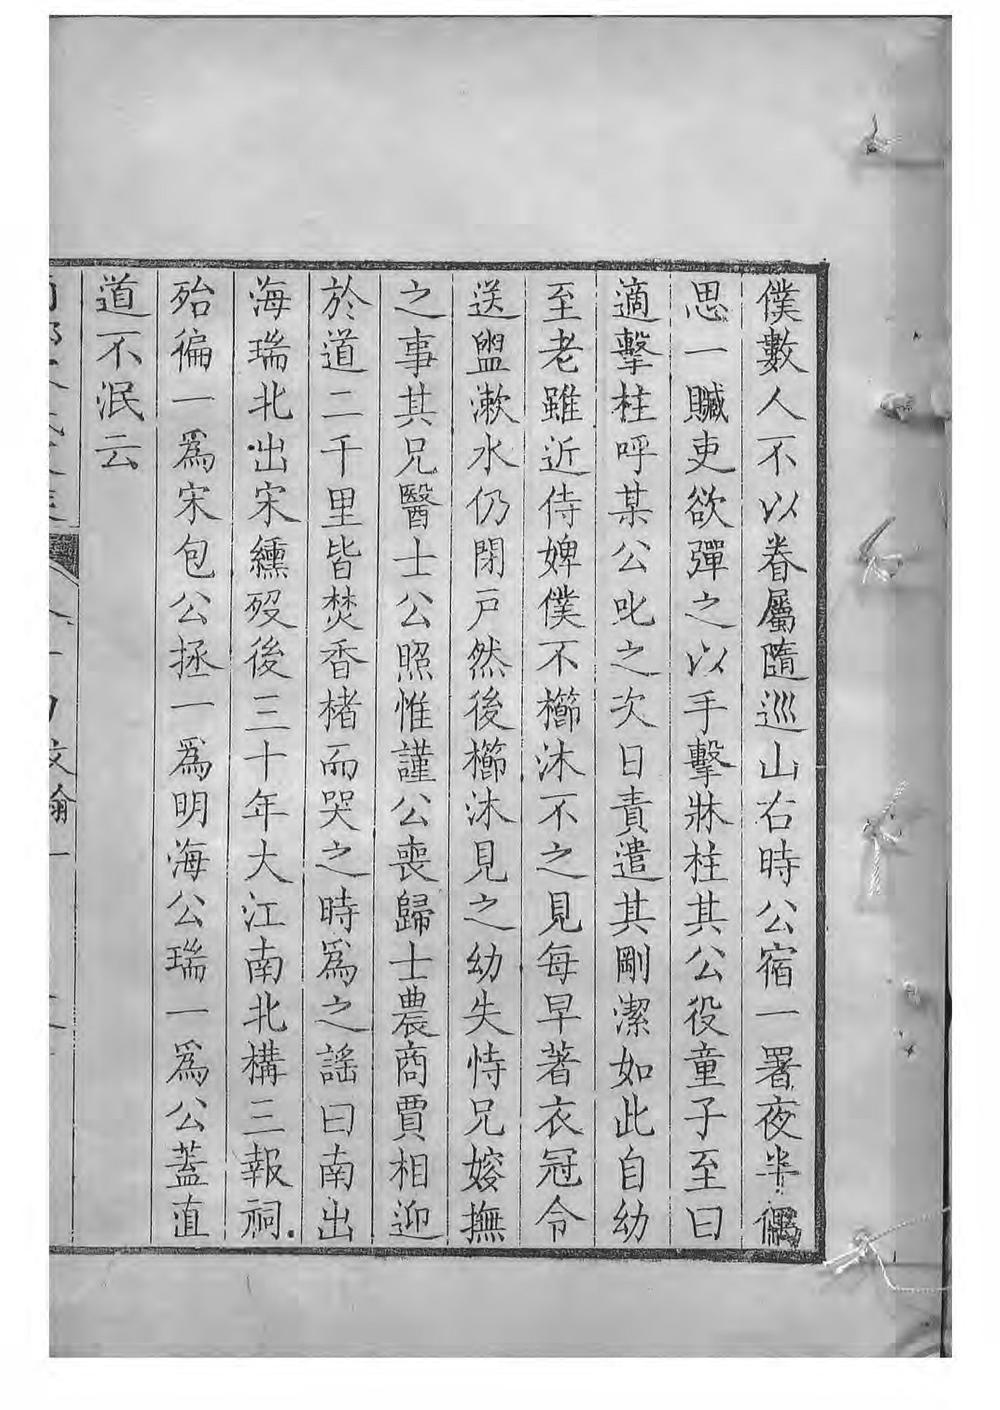 僕數人不以眷屬隨巡山右時公宿一署夜半偶
思一贓吏欲彈之以手擊牀柱其公役童子至曰
適擊柱呼某公叱之次日責遣其剛潔如此自幼
至老雖近侍婢僕不櫛沐不之見每早著衣冠令
送盥漱水仍閉戸然後櫛沐見之幼失恃兄嫆撫
之事其兄醫士公照惟謹公喪歸士農商賈相迎
於道二千里皆焚香楮而哭之時爲之謡曰南出
海瑞北出宋纁歿後三十年大江南北構三報祠
殆徧一爲宋包公拯一爲明海公瑞一爲公蓋直
道不泯云